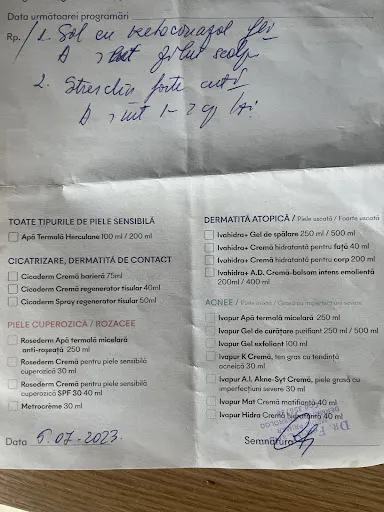 Data următoarei programări
Rp. / 1. Sol cu ketoconazol
D
2. forte
D 1-2
TOATE TIPURILE DE PIELE SENSIBILĂ
Apă Termală Herculane 100 ml / 200 ml
CICATRIZARE, DERMATITĂ DE CONTACT
Cicaderm Cremă barieră 75ml
Cicaderm Cremă regenerator tisular 40ml
Cicaderm Spray regenerator tisular 50ml
PIELE CUPEROZICĂ / ROZACEE
Rosederm Apă termală micelară
anti-roșeață 250 ml
Rosederm Cremă pentru piele sensibilă
cuperozică 30 ml
Rosederm Cremă pentru piele sensibilă
cuperozică SPF 30 40 ml
Metrocrème 30 ml
Data 5.07.2023.
DERMATITĂ ATOPICĂ / Piele uscată / Foarte uscată
Ivahidra+ Gel de spălare 250 ml / 500 ml
Ivahidra+ Cremă hidratantă pentru față 40 ml
Ivahidra+ Cremă hidratantă pentru corp 200 ml
Ivahidra+ A.D. Cremă-balsam intens emolientă
200ml / 400 ml
ACNEE /
Ivapur Apă termală micelară 250 ml
Ivapur Gel de curățare purifiant 250 ml / 500 ml
Ivapur Gel exfoliant 100 ml
Ivapur K Cremă, ten gras cu tendință
acneică 30 ml
Ivapur A.I. Akne-Syt Cremă, piele grasă cu
imperfecțiuni severe 30 ml
Ivapur Mat Cremă matifiantă 40 ml
Ivapur Hidra Cremă hidratantă 40 ml
Semnătura